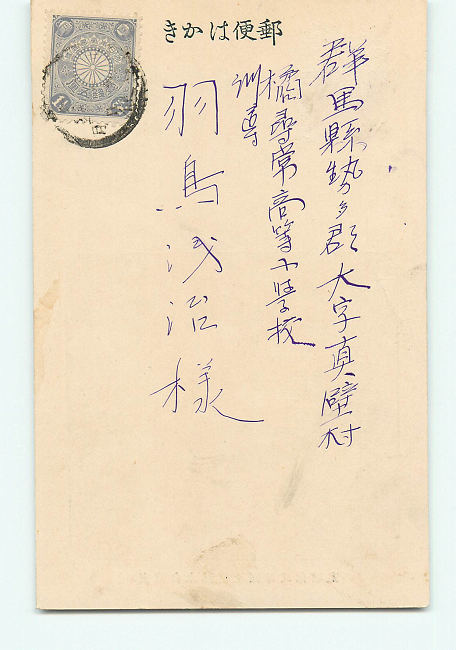 郵便はかき
群馬縣勢多郡大字真壁村
橘尋常高等小学校
訓導
羽鳥浅治様